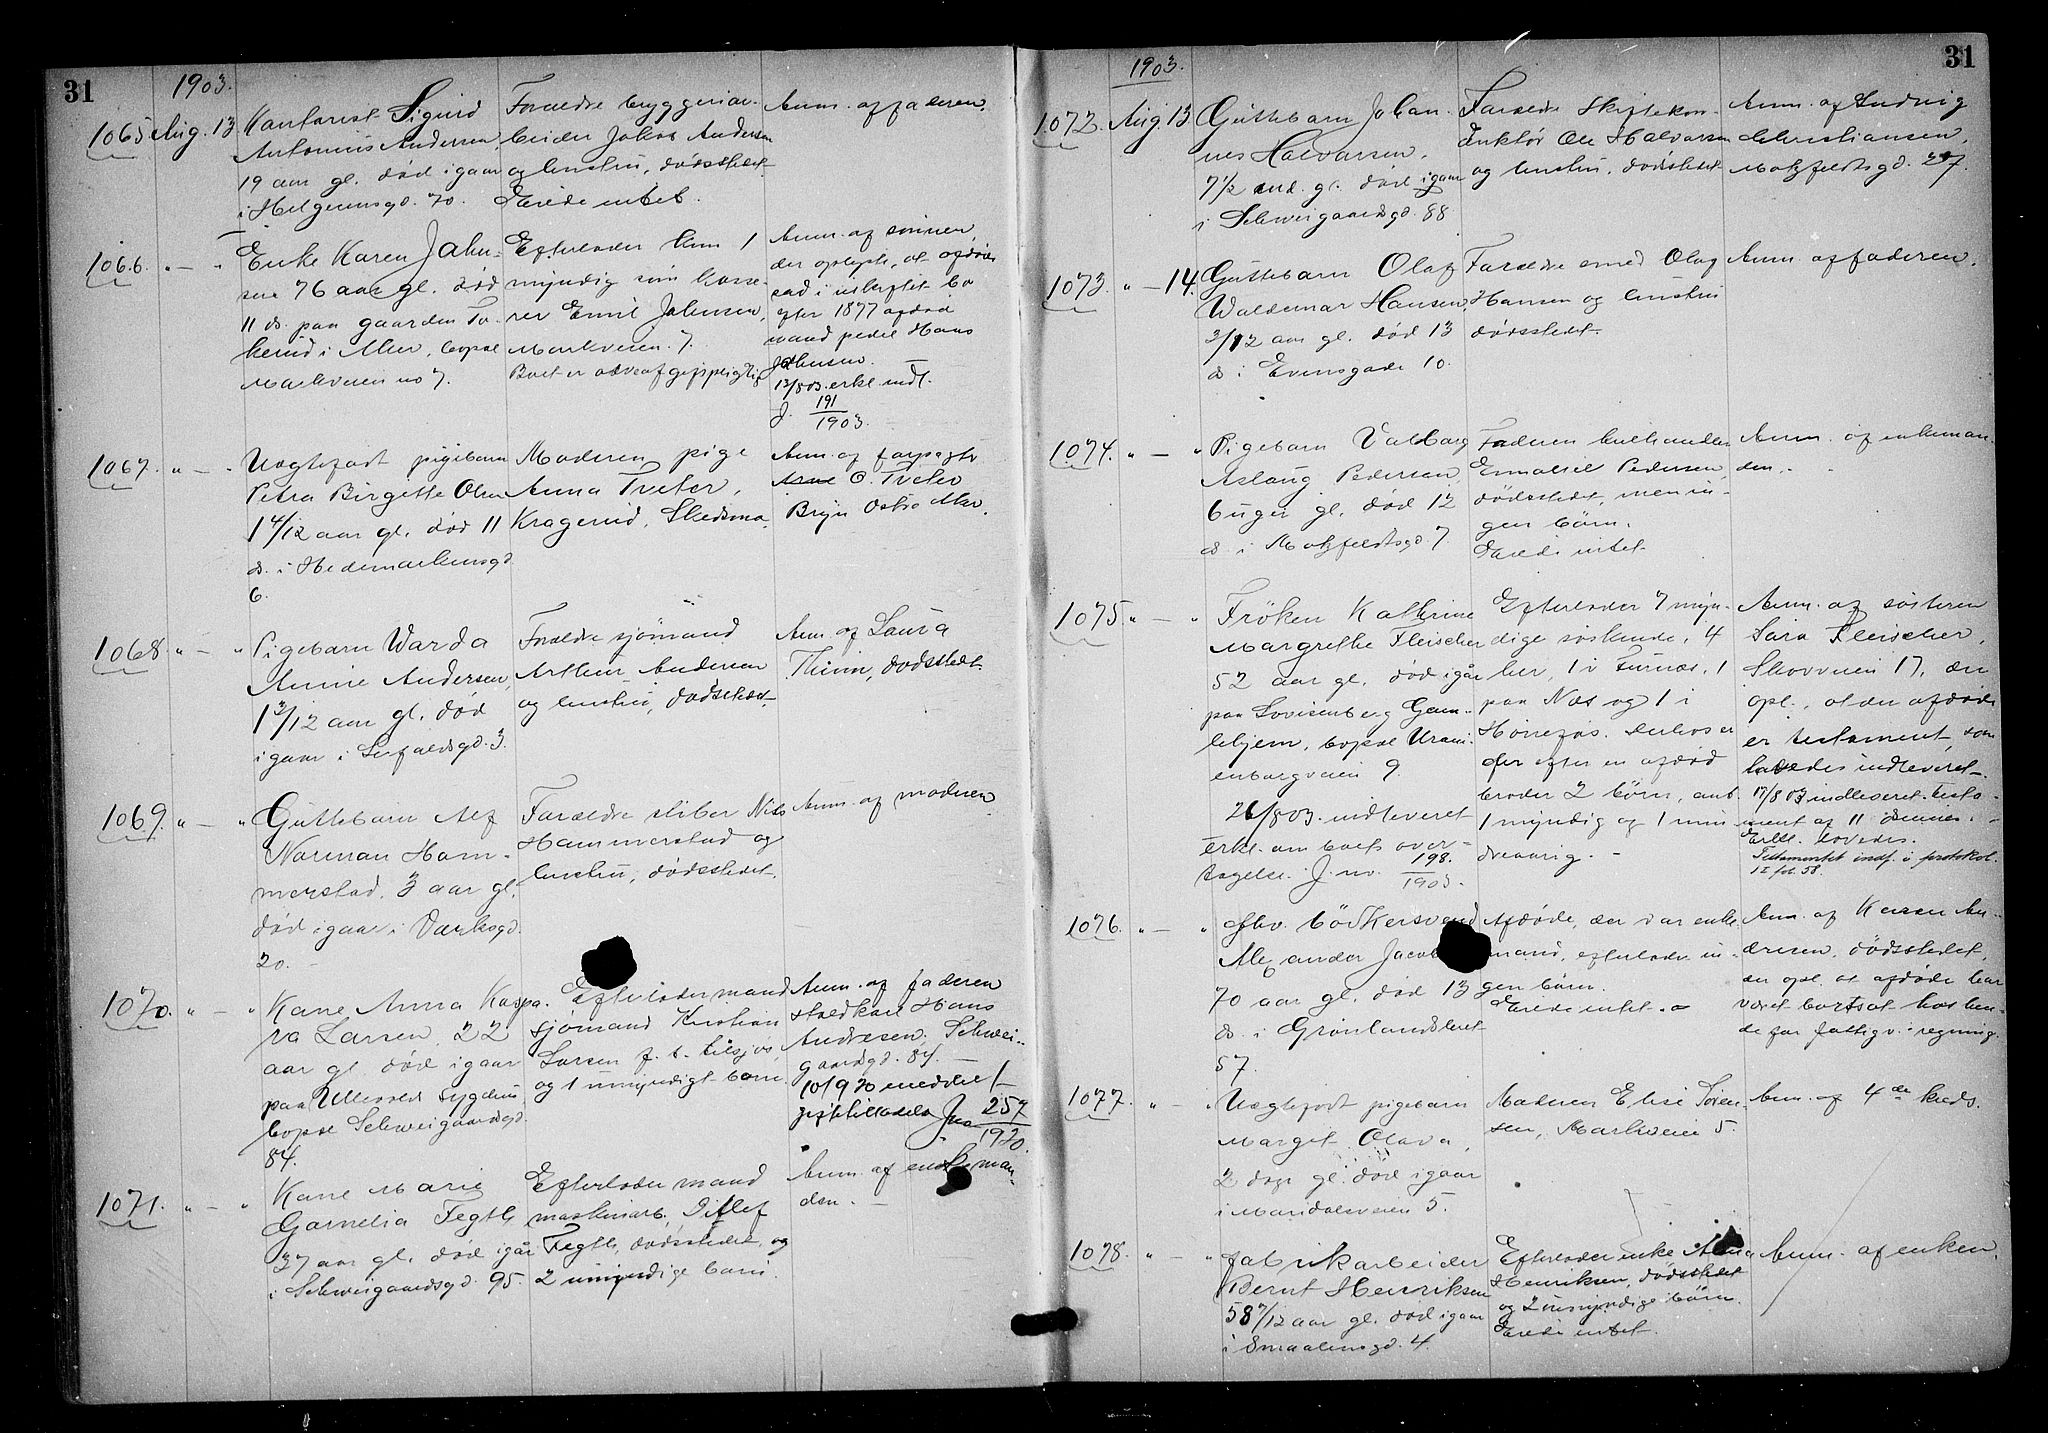 31
1903.
1065 Aug. 13
Kontorist Sigurd
Antonius Andersen,
19 aar gl. død igaar
i Helgesensgd. 70.
Forældre bryggeriar-
beider Johan Andersen
og hustru, dødsstedet.
Eiede intet.
Anm. af faderen.
1066. " — "
Enke Karen John-
sen 76 aar gl. død
11 ds. paa gaarden
i Aker, bopæl
Markveien no 7.
Efterlader kun 1
myndig søn kasse-
rer Emil Johnsen,
Markveien 7.
Boet er
Anm. af sønnen,
der oplyste, at afdøde
sad i uskiftet bo
efter 1877 afdød
mand pedel Hans
Johnsen. —
13/8 03. erkl. indl.
J. 191/1903.
1067. " — "
Uægtefødt pigebarn
Petra Birgitte Olsen
1 4/12 aar gl. død 11
ds. i Hedemarkensgd
6.
Moderen pige
Anna Tveter,
Kragerud, Skedsmo.
Anm. af forpagter
C. Tveter
Bryn Østre Aker.
1068 " — "
Pigebarn Warda
Annie Andersen,
1 3/12 aar gl. død
igaar i Seilduksgd. 3.
Forældre sjømand
Arthur Andersen
og hustru, dødsstedet.
Anm. af Laura
Thunn, dødsstedet
1069. " — "
Guttebarn Alf
Norman Ham-
merstad, 3 aar gl.
død igaar i Værksgd.
20. —
Forældre sliber Nils
Hammerstad og
hustru, dødsstedet.
Anm. af moderen
1070. " — "
Kone Anna Kaspa-
ra Larsen, 22
aar gl. død igaar
paa Ullevold sygehus,
bopæl Schweigaardsgd.
84.
Efterlader mand
sjømand Kristian
Larsen f. t. tilsjøs,
og 1 umyndigt barn
Anm. af faderen
staldkarl Hans
Andresen, Schwei-
gaardsgd. 84. —
10/9 20 meddelt
skiftetilladelse Jno 257/1920.
1071. " — "
Kone Marie
Gornelia Fegth
37 aar gl. død igår
i Schweigaardsgd. 95.
Efterlader mand
maskinarb. Ditlef
Fegth, dødsstedet, og
2 umyndige børn.
Anm. af enkeman-
den. —
31
1903.
1072. Aug. 13
Guttebarn Johan-
nes Halvorsen,
7 1/2 md. gl. død igaar
i Schweigaardsgd. 88
Forældre Skiftekon-
duktør Ole Halvorsen
og hustru, dødsstedet
Anm. af Ludvig
Christiansen,
Motzfeldtsgd. 27.
1073. " — 14.
Guttebarn Olaf
Waldemar Hansen,
2/12 aar gl. død 13
ds. i Evensgade 10.
Forældre smed Olaf
Hansen og hustru
dødsstedet
Anm. af faderen.
1074. " — "
Pigebarn Valborg
Aslaug Pedersen,
6 uger gl. død 12
ds. i Motzfeldtsgd. 7
Faderen kulhandler
Pedersen,
dødsstedet, men in-
gen børn.
Eiede intet.
Anm. af enkeman-
den. -
1075 " — "
Frøken Kathrine
Margrethe Fleischer
52 aar gl. død igår
paa Lovisenberg Gam-
lehjem, bopæl Urani-
enborgveien 9.
26/8 03. indleveret
erkl. om boets over-
tagelse. J. no. 198./1903.
Efterlader 7 myn-
dige søskende, 4
her, 1 i Furnæs, 1
paa Næs og 1 i
Hønefos. Derhos er
der efter en afdød
broder 2 børn, amt.
1 myndig og 1 min
dreaarig. -
Anm. af søsteren
Sara Fleischer,
Skovveien 17, der
opl., at der afdøde
er testament, som
lovedes indleveret.
17/8 03 indleveret testa-
ment af 11 dennes.
Erkl. lovedes.
Testamentet indf. i protokol
II fol. 58.
1076. " — "
Fhv. bødkersvend
Alexander Jacob
70 aar gl. død 13
ds. i Grønlandsleret
57.
Afdøde, der var enke-
mand, efterlader in-
gen børn.
Eiede intet.
Anm. af Karen An-
dresen, dødsstedet,
der opl. at afdøde har
været bortsat hos hen-
de for fattigv. regning.
1077. " — "
Uægtefødt pigebarn
Margit Olava,
2 dage gl. død igaar
i Maridalsveien 5.
Moderen Elise Soren-
sen, Markveien 5.
Anm. af 4de kreds.
1078. " — "
Fabrikarbeider
Bernt Henriksen
58 7/12 aar gl. død igaar
i Smaalensgd. 4.
Efterlader enke
Henriksen, dødsstedet
og 2 umyndige børn.
Eiede intet.
Anm. af enken.